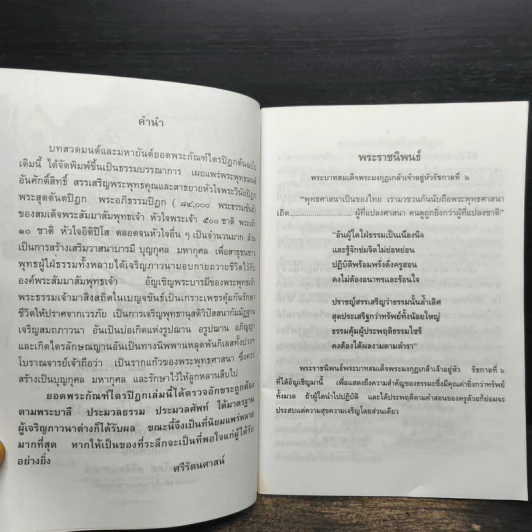 คำนำ
บทสวดมนต์และมหายันต์ยอดพระกัณฑ์ไตรปิฎกต้นฉบับ
เดิมนี้ ได้จัดพิมพ์ขึ้นเป็นธรรมบรรณาการ เผยแพร่พระพุทธมนต์
อันศักดิ์สิทธิ์ สรรเสริญพระพุทธคุณและสาธยายหัวใจพระวินัยปิฎก
พระสุตตันตปิฎก พระอภิธรรมปิฎก (๘๔,๐๐๐ พระธรรมขันธ์)
ของสมเด็จพระสัมมาสัมพุทธเจ้า หัวใจพระเจ้า ๕๐๐ ชาติ พระเจ้า
๑๐ ชาติ หัวใจอิติปิโส ตลอดจนหัวใจอื่น ๆ เป็นจำนวนมาก อัน
เป็นการสร้างเสริมวาสนาบารมี บุญกุศล มหากุศล เพื่อสาธุชน
พุทธผู้ใฝ่ธรรมทั้งหลายได้เจริญภาวนามอบกายถวายชีวิตไว้กับ
องค์พระสัมมาสัมพุทธเจ้า อัญเชิญพระบารมีของพระพุทธเจ้า
พระธรรมเจ้ามาสิงสถิตในเบญจขันธ์เป็นเกราะเพชรคุ้มกันรักษา
ชีวิตให้ปราศจากเวรภัย เป็นการเจริญพุทธานุสติวิปัสสนากัมมัฏฐาน
เจริญสมถภาวนา อันเป็นบ่อเกิดแห่งรูปฌาน อรูปฌาน อภิญญา
และเกิดไตรลักษณญาณอันเป็นทางนิพพานหลุดพ้นกิเลสทั้งปวง
โบราณจารย์เจ้าถือว่า เป็นรากแก้วของพระพุทธศาสนา ซึ่งควร
สร้างเป็นบุญกุศล มหากุศล และรักษาไว้ให้ลูกหลานสืบไป
ยอดพระกัณฑ์ไตรปิฎกเล่มนี้ได้ตรวจอักขระถูกต้อง
ตามพระบาลี ประมวลธรรม ประมวลศัพท์ ได้มาตรฐาน
ผู้เจริญภาวนาต่างก็ได้รับผล ขณะนี้จึงเป็นที่นิยมแพร่หลาย
มากที่สุด หากให้เป็นของที่ระลึกก็จะเป็นที่พอใจแก่ผู้ได้รับ
อย่างยิ่ง
ศรีรัตนศาสน์
พระราชนิพนธ์
พระบาทสมเด็จพระมงกุฎเกล้าเจ้าอยู่หัวรัชกาลที่ ๖
"พุทธศาสนาเป็นของไทย เรามาชวนกันนับถือพระพุทธศาสนา
เถิด.................... ผู้ที่แปลงศาสนา คนดูถูกยิ่งกว่าผู้ที่แปลงชาติ"
"อันผู้ใดใฝ่ธรรมเป็นเนืองนิจ
และรู้จักข่มจิตไม่ย่อหย่อน
ปฏิบัติพร้อมพรั่งดั่งครูสอน
คงไม่ต้องอนาทรและร้อนใจ
ปราชญ์สรรเสริญว่าธรรมนั้นล้ำเลิศ
สุดประเสริฐกว่าทรัพย์ทั้งน้อยใหญ่
ธรรมคุ้มผู้ประพฤติธรรมไซร้
คงต้องได้ผลงามตามตำรา"
พระราชนิพนธ์พระบาทสมเด็จพระมงกุฎเกล้าเจ้าอยู่หัว รัชกาลที่ ๖
ที่ได้อัญเชิญมานี้ เพื่อแสดงถึงความสำคัญของธรรมะซึ่งมีคุณค่ายิ่งกว่าทรัพย์
ทั้งมวล ถ้าผู้ใดนำไปปฏิบัติ และได้ประพฤติตามคำสอนของครูด้วยก็ย่อมจะ
ประสบแต่ความสุขความเจริญโดยส่วนเดียว